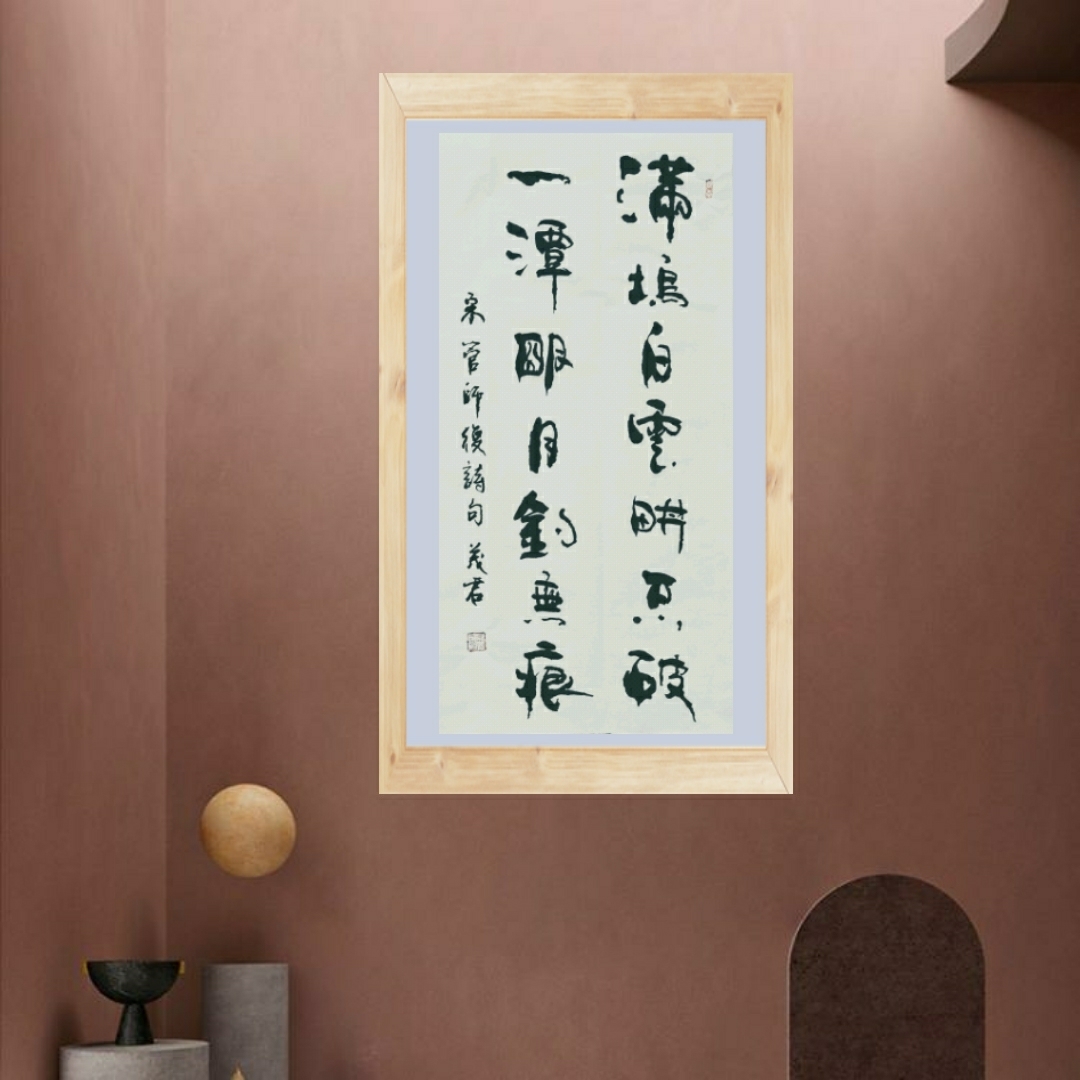 滿塢白雲畊不破
一潭朙月釣無痕
宋管師復詩句 茂君